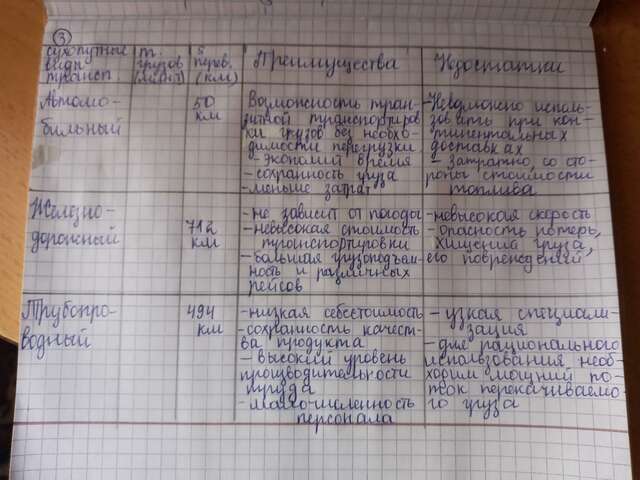 3
сухопутные виды трансп.
т. грузов (млн т)
s перев. (км)
Преимущества
Недостатки
Автомо-
бильный
50
км
Возможность тран-
зитной транспортиров
ки грузов без необхо-
димости перегрузки
- экономий время
- сохранность груза
- меньше затрат
- Невозможно исполь-
зовать при кон-
тинентальных
доставках
- затратно со сто-
роны стоимости
топлива
Железно-
дорожный
712
км
- не зависит от погоды
- невысокая стоимость
транспортировки
- большая грузоподъём-
ность и различных
рейсов
- невысокая скорость
- опасность потерь,
хищений груза,
его повреждений
Трубопро-
водный
494
км
- низкая себестоимость
- сохранность качест-
ва продукта
- высокий уровень
производительности
труда
- малочисленность
персонала
- узкая специали-
зация
- для рационального
использования необ-
ходим мощный по-
ток перекачиваемо-
го груза